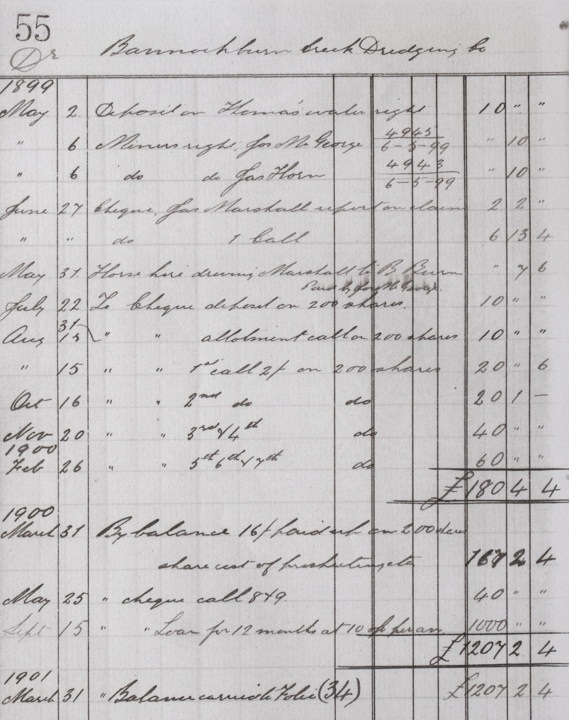 55
Dr Bannockburn Creek Dredging Co
1899
May 2 Deposit on Thomas water right 10 " "
" 6 Miners right, Jas McGeorge 4945 / 6-5-99 " 10 "
" 6 do do Jas Horn 4943 / 6-5-99 " 10 "
June 27 Cheque, Jas Marshall report on claim 2 2 "
" " do 1 Call 6 13 4
May 31 Horse hire driving Marshall to B Burn " 7 6
July 22 To Cheque deposit on 200 shares. 10 " "
Aug 31 " " allotment call on 200 shares 10 " "
" 15 " " 1st call 2/ on 200 shares 20 " 6
Oct 16 " " 2nd do do 20 1 –
Nov 20 " " 3rd & 4th do 40 " "
1900
Feb 26 " " 5th 6th & 7th do 60 " "
£ 180 4 4
1900
March 31 By balance 16/ paid up on 200 share
share cost of prospecting etc 167 2 4
May 25 " cheque call 8 & 9 40 " "
Sept 15 " " Loan for 12 months at 10 per an. 1000 " "
£ 1207 2 4
1901
March 31 " Balance carried to Folio (34) £ 1207 2 4